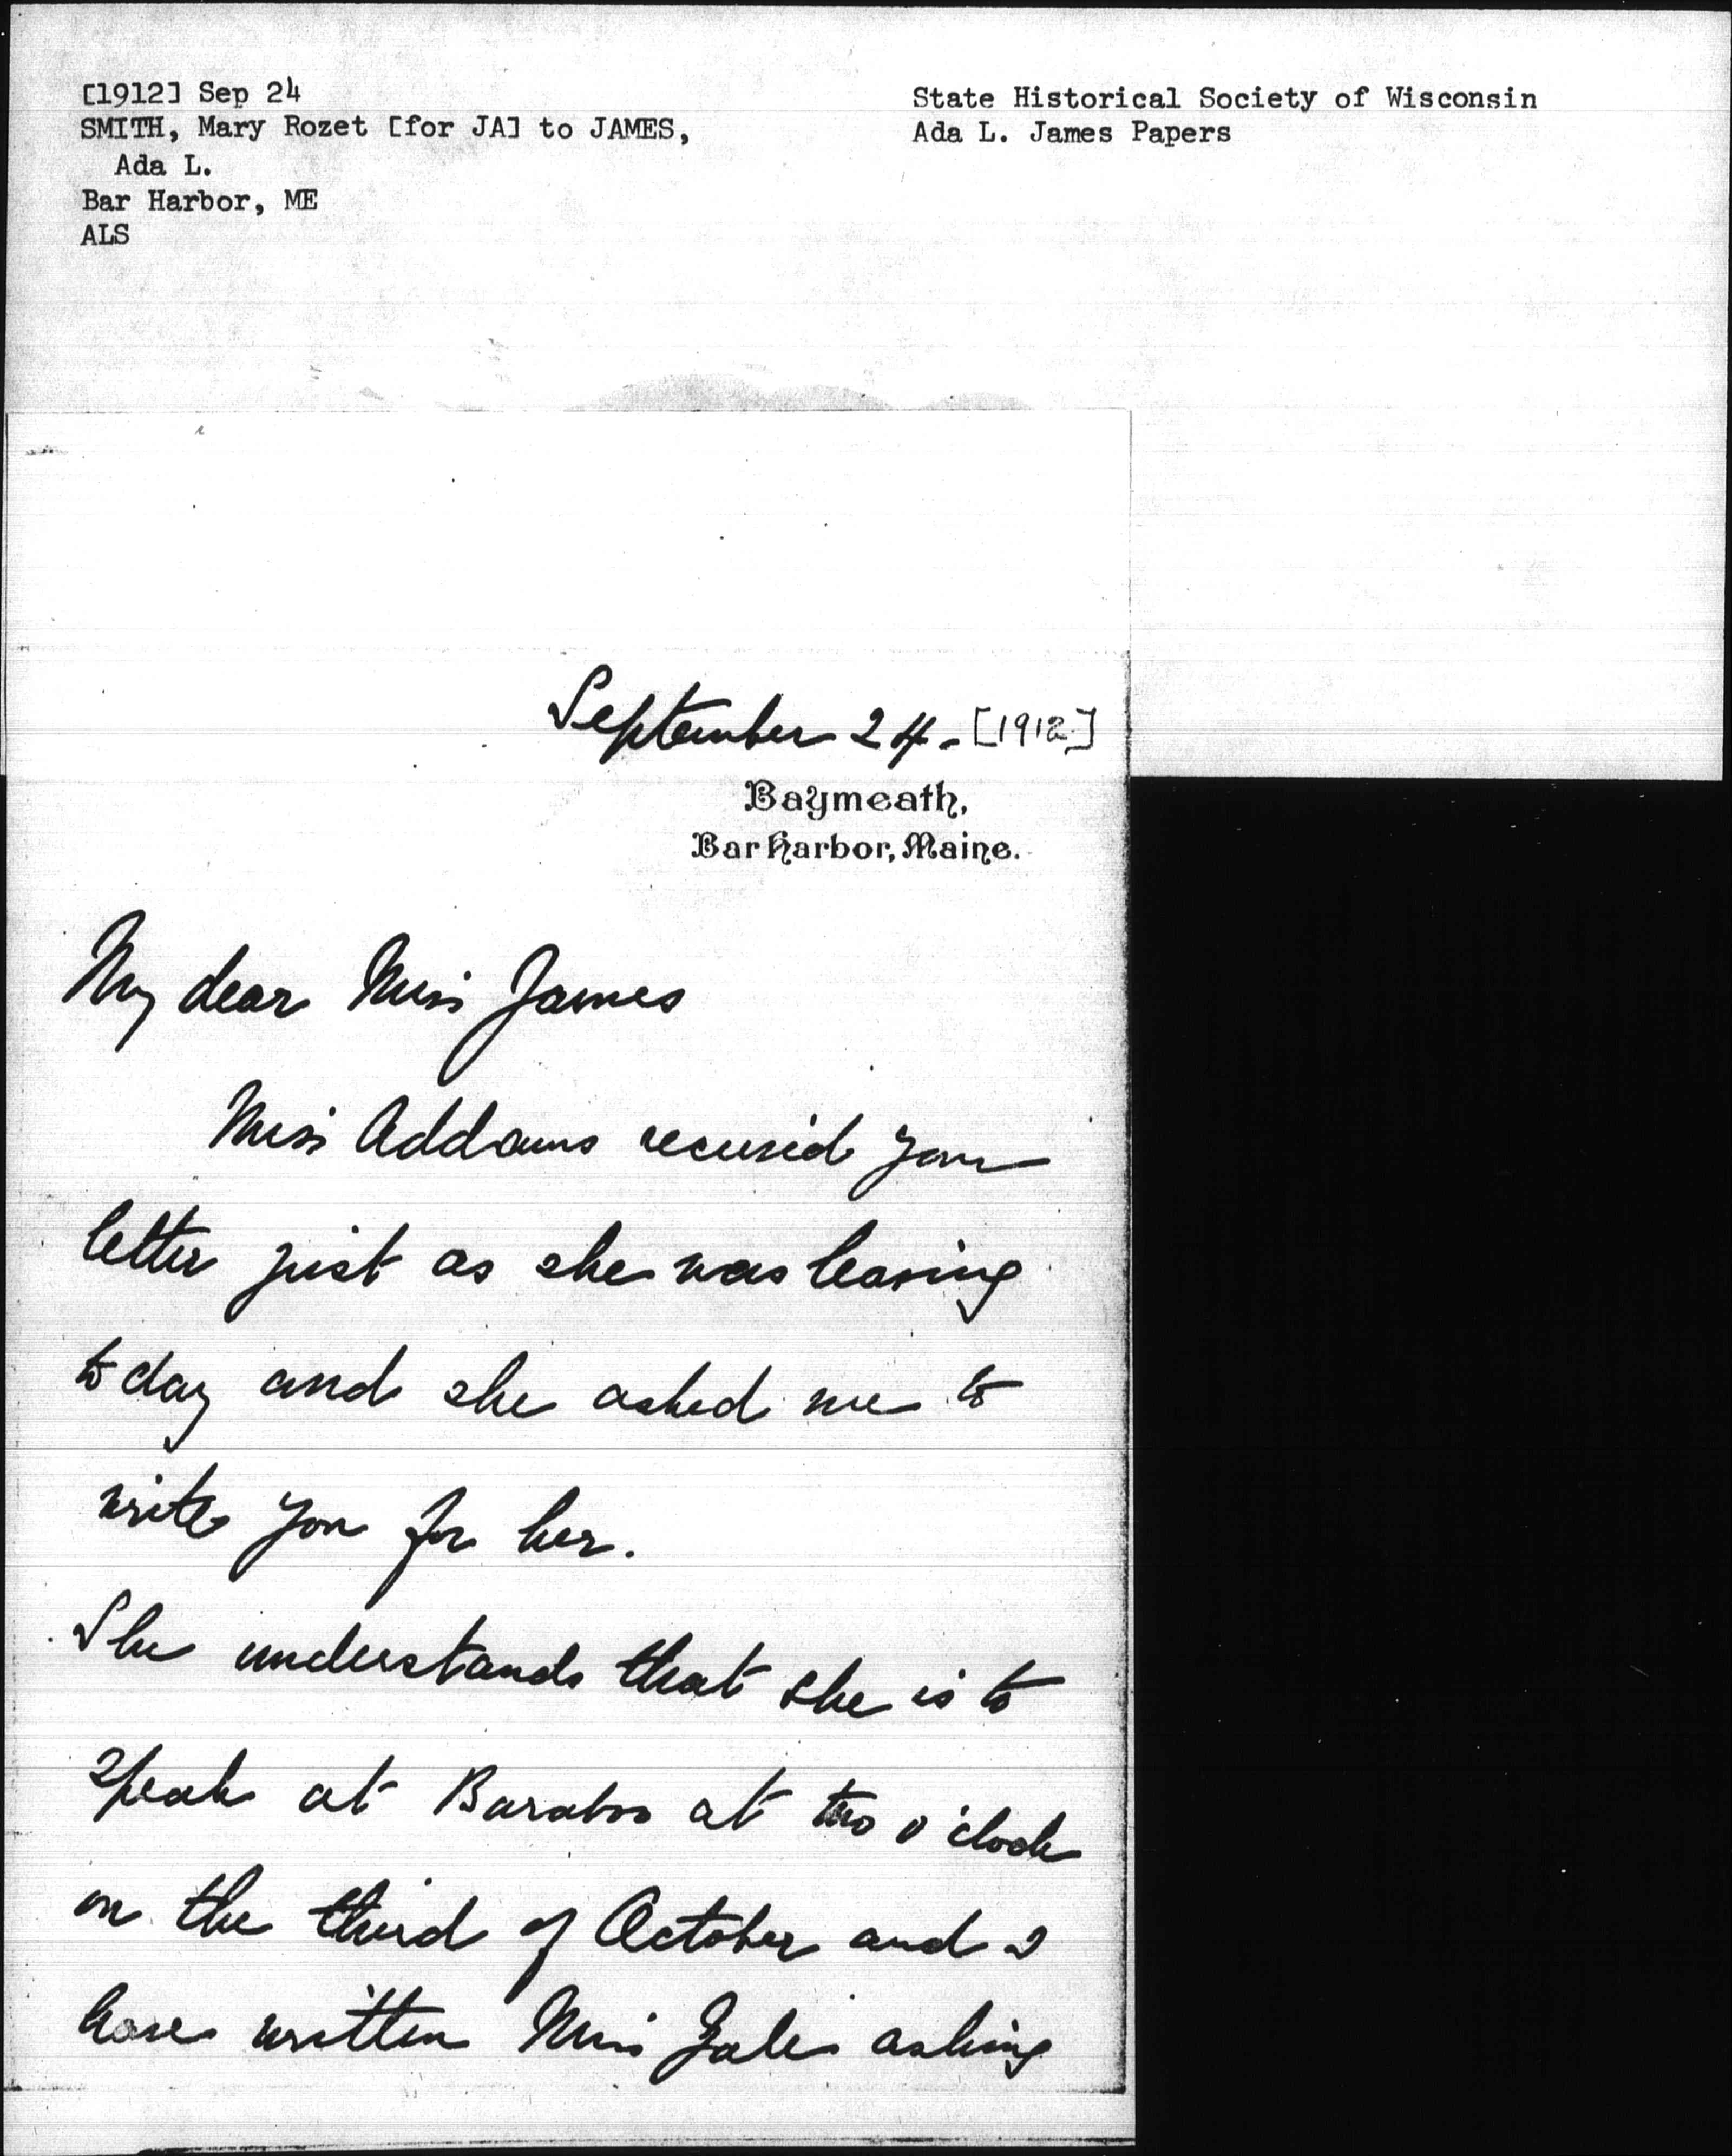 [1912] Sep 24
SMITH, Mary Rozet [for JA] to JAMES,
Ada L.
Bar Harbor, ME
ALS
State Historical Society of Wisconsin
Ada L. James Papers
September 24. [1912]
Baymeath,
Bar Harbor, Maine.
My dear Miss James
Miss Addams received your
letter just as she was leaving
to day and she asked me to
write you for her.
She understands that she is to
speak at Baraboo at two o'clock
on the third of October and I
have written Miss Gale asking